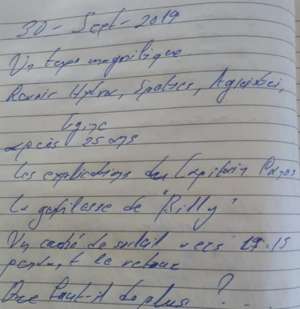 30 - Sept - 2019
Un temps magnifique
Revoir Hydra, Spetses, Agistri,
Egine
après 25 ans
Les explications du Capitain
La gentillesse de "Billy"
Un couché de soleil vers 19.15
pendant le retour
Que faut-il de plus ?